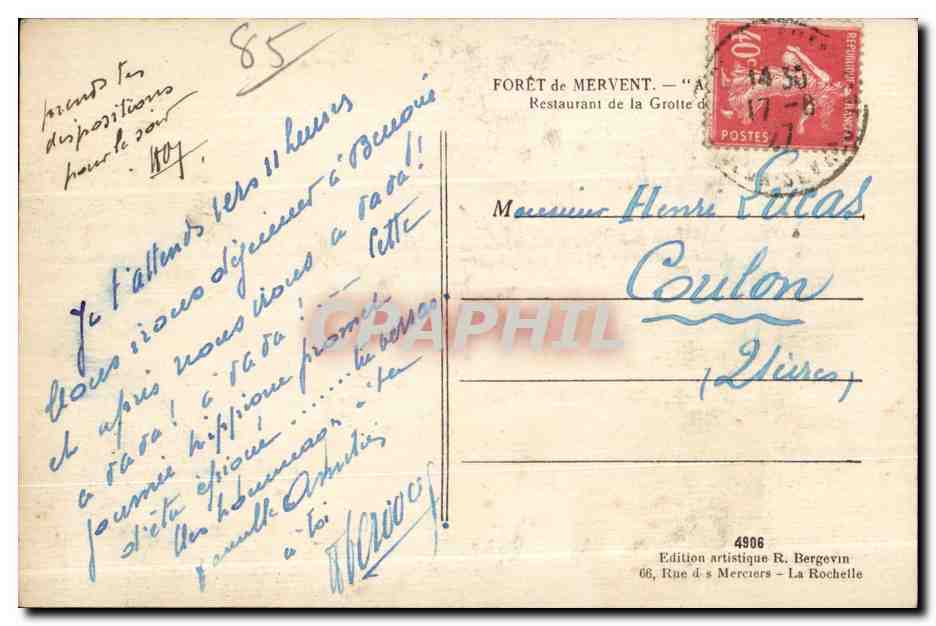 85
prends tes
dispositions
pour le soir
Je t'attends vers 11 heures
Nous irons déjeuner à Benoné
et après nous irons à dada!
à dada! à dada! Cette
journée hippique promet
d'être épique..... tu verras.
Mes hommages à ta
famille Amitiés
à toi
FORÊT de MERVENT. — "A
Restaurant de la Grotte d
40c
REPUBLIQUE FRANCAISE
POSTES
14 30
17 -8
Monsieur Henri Lucas
Coulon
(2 Sèvres)
CPAPHIL
4906
Edition artistique R. Bergevin
66, Rue d s Merciers - La Rochelle